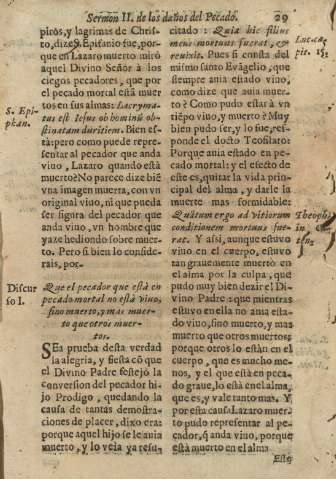 Sermon II. de los daños del Pecado. 29
piros, y lagrimas de Chris-
to, dize S. Epifanio fue, por-
que en Lazaro muerto miró
aquel Divino Señor à los
ciegos pecadores, que por
el pecado mortal està muer
tos en sus almas: Lacryma-
tus est Iesus ob hominū ob-
stinatam duritiem. Bien es-
tà: pero como puede repre-
sentar al pecador que anda
vivo, Lazaro quando està
muerto? No parece dize biē
vna imagen muerta, con vn
original vivo, ni que pueda
ser figura del pecador que
anda vivo, vn hombre que
yaze hediondo sobre muer-
to. Pero si bien lo conside-
rais, por-
S. Epi-
phan.
Discur
so I.
Que el pecador que està en
pecado mortal no està vivo,
sino muerto, y mas muer-
to que otros muer-
tos.
SEa prueba desta verdad
la alegria, y fiesta cō que
el Divino Padre festejò la
conversion del pecador hi-
jo Prodigo, quedando la
causa de tantas demostra-
ciones de placer, dixo era:
porque aquel hijo se le avia
muerto, y lo veia ya resu-
citado: Quia hic filius
meus mortuus fuerat, & re
revixit. Pues si consta del
mismo santo Evāgelio, que
siempre avia estado vivo,
como dize que avia muer-
to? Como pudo estar à vn
tiēpo vivo, y muerto? Muy
bien pudo ser, y lo fue, res-
ponde el docto Teofilato:
Porque avia estado en pe-
cado mortal: y el efecto de
este es, quitar la vida prin-
cipal del alma, y darle la
muerte mas formidable:
Quātum ergo ad vitiorum
conditionem mortuus fue-
rat. Y assi, aunque estuvo
vivo en el cuerpo, estuvo
tan gravemente muerto en
el alma por la culpa, que
pudo muy bien dezir el Di-
vino Padre: que mientras
estuvo en ella no avia esta-
do vivo, sino muerto, y mas
muerto que otros muertos:
porque otros lo estàn en el
cuerpo, que es mucho me-
nos, y el que està en peca-
do grave, lo està en el alma,
que es, y vale tanto mas. Y
por esta causa Lazaro muer-
to pudo representar al pe-
cador, q̄ anda vivo, porque
està muerto en el alma
Luc. cap.
pit. 15.
Theoph.
in
Este